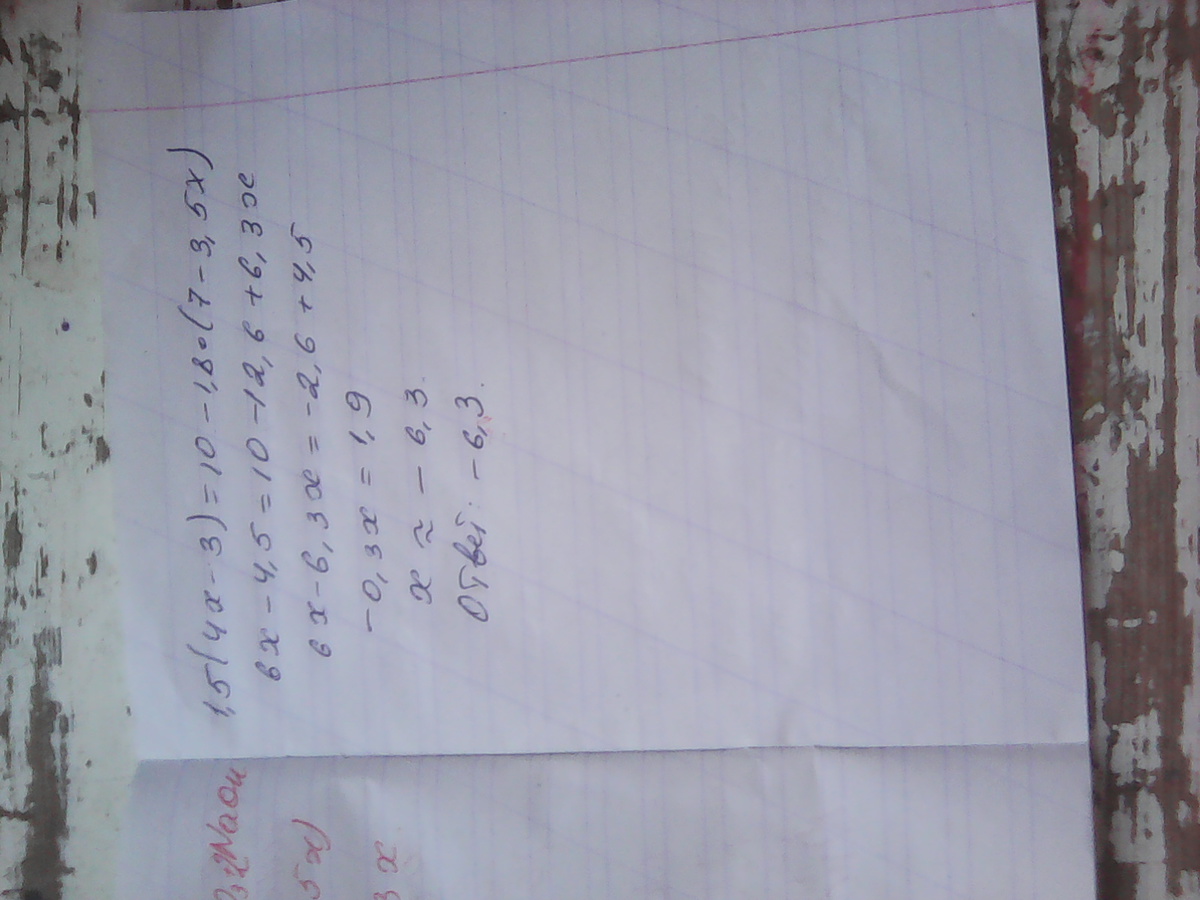 1,5(4x-3)=10-1,8·(7-3,5x)
6x-4,5=10-12,6+6,3x
6x-6,3x=-2,6+4,5
-0,3x=1,9
x≈-6,3.
Ответ: -6,3.
2NaOH
5x)
3x